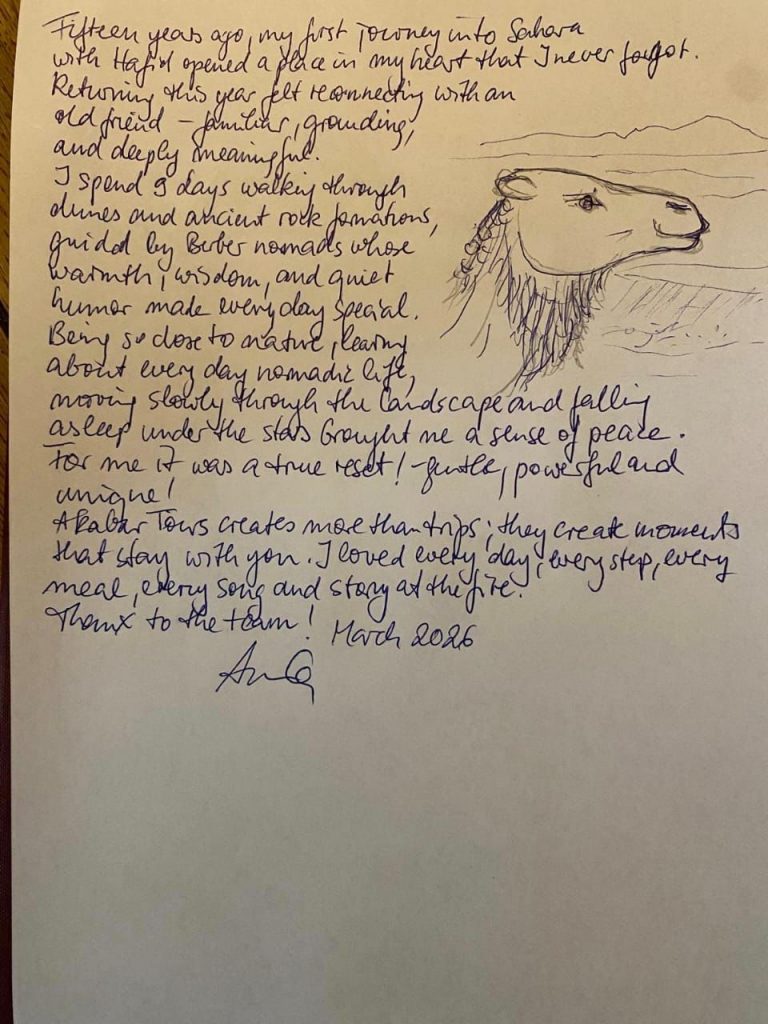 Fifteen years ago, my first journey into Sahara
with Hafid opened a place in my heart that I never forgot.
Returning this year felt reconnecting with an
old friend – familiar, grounding,
and deeply meaningful.
I spend 9 days walking through
dunes and ancient rock formations,
guided by Berber nomads whose
warmth, wisdom, and quiet
humor made every day special.
Being so close to nature, learing
about every day nomadic life,
moving slowly through the landscape and falling
asleep under the stars brought me a sense of peace.
For me it was a true reset! – gentle, powerful and
unique!
Akabar Tours creates more than trips; they create moments
that stay with you. I loved every day, every step, every
meal, every song and story at the fire.
Thanx to the team! March 2026